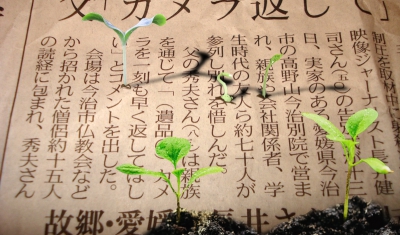 父「カメラ返して」
制圧を取材中に射殺
映像ジャーナリスト長井健
司さん（五〇）の告　　十三
日、実家のある愛媛県今治
市の高野山今治別院で営ま
れ、親族や会社関係者、学
生時代の　人ら約七十人が
参列し別れを惜しんだ。
父の秀夫さん（八　）は親族
を通じて「（遺品　　カメ
ラを）一刻も早く返してほし
い」とコメントを出した。
会場は今治市仏教会など
から招かれた僧侶約十五人
の読経に包まれ、秀夫さん
故郷・愛媛　長井さ